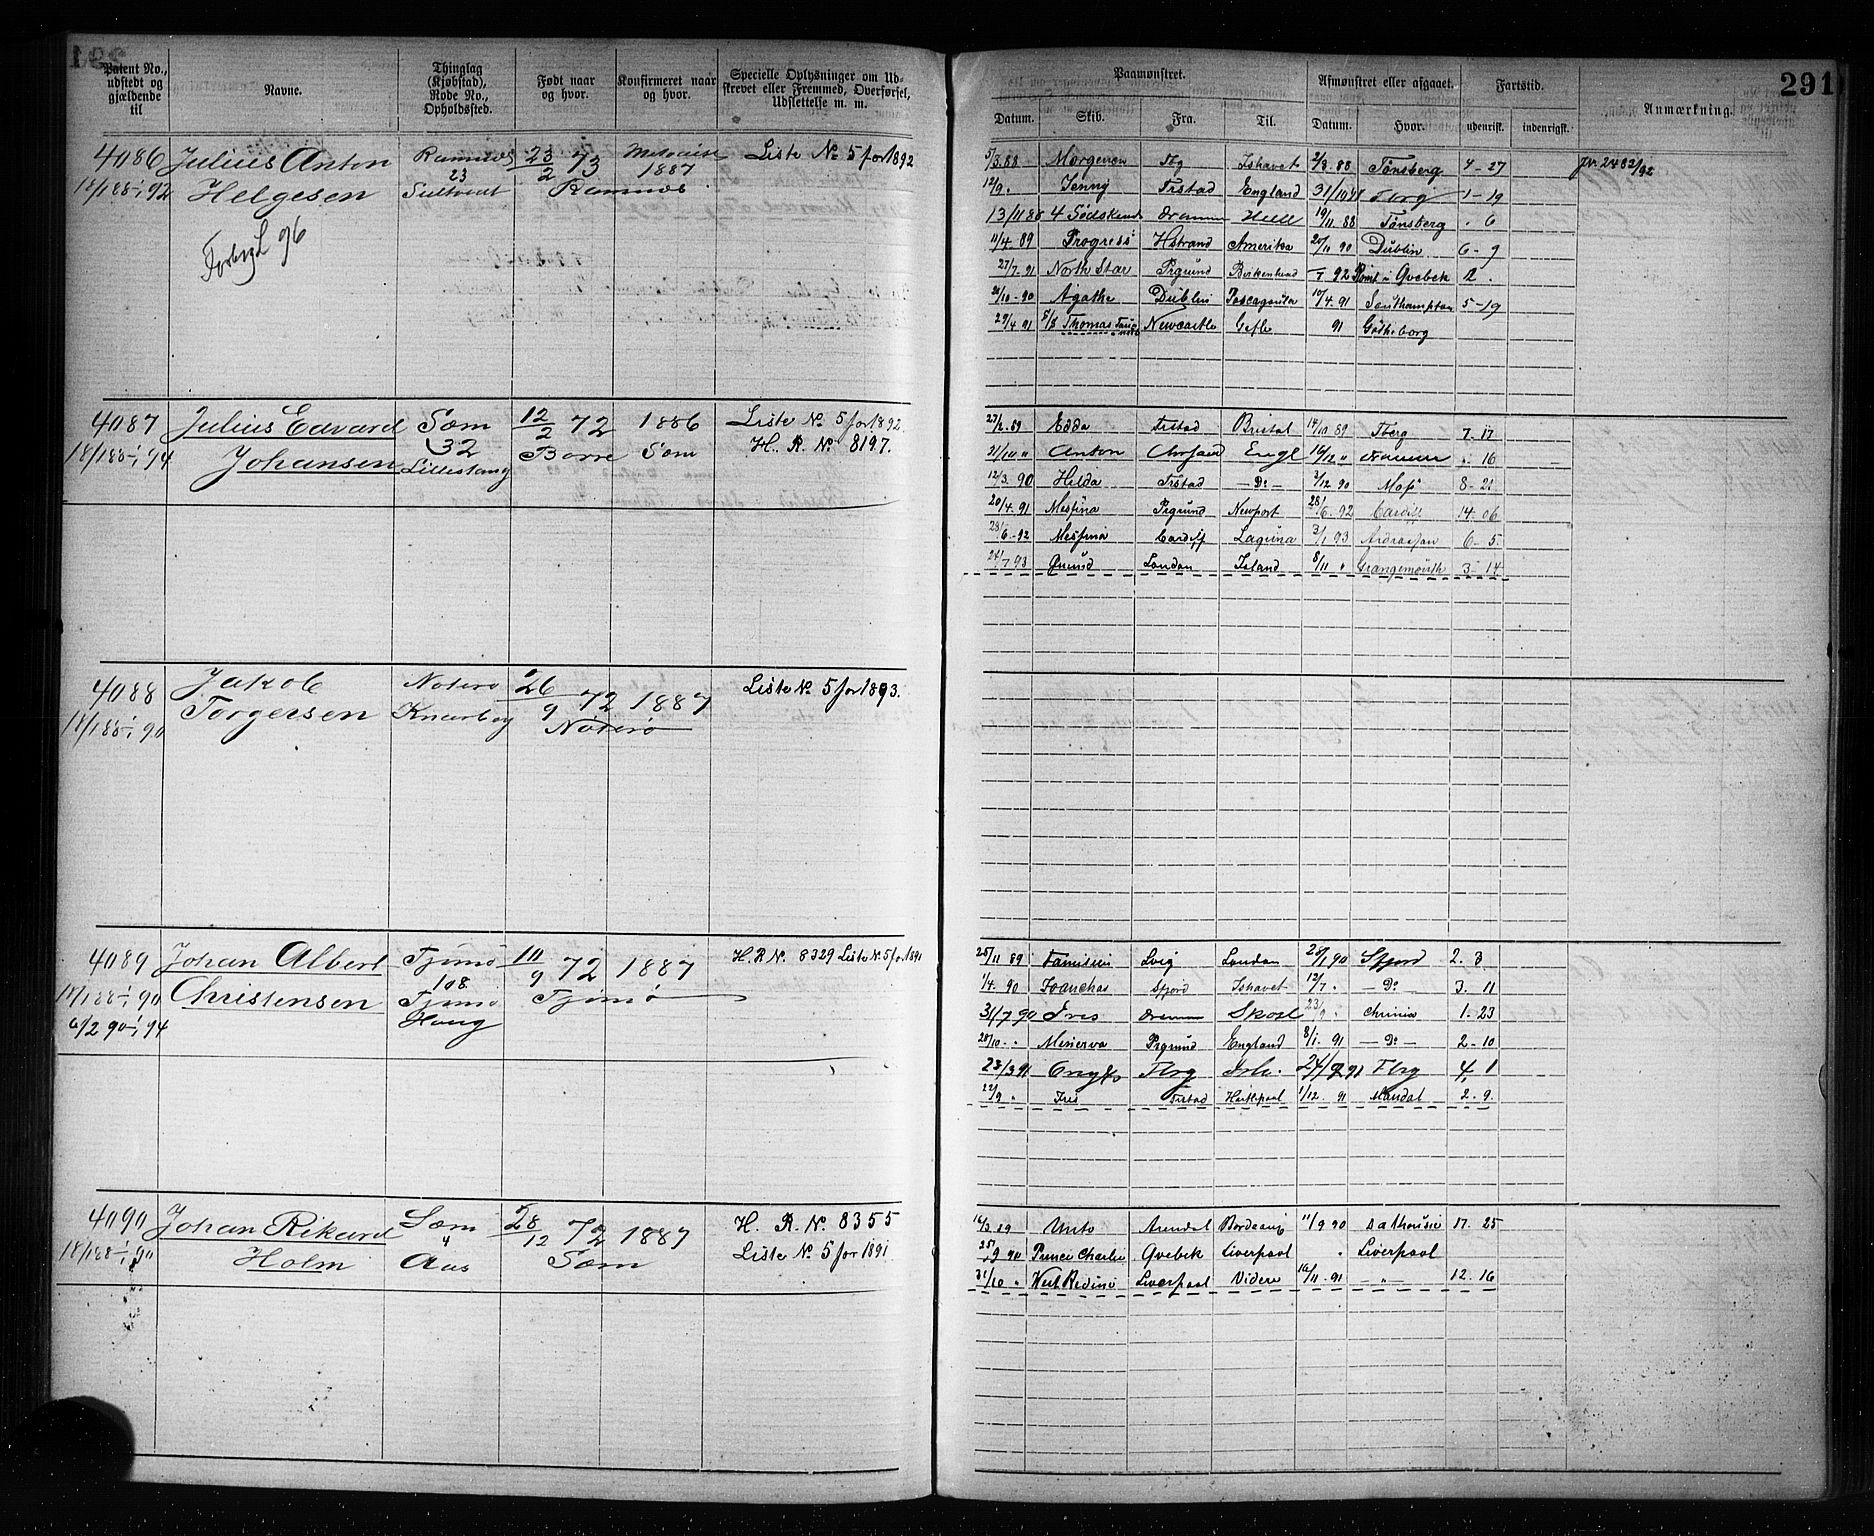 291
Patent No., udstedt og gjældende til
Navne.
Thinglag (Kjøbstad), Rode No., Opholdssted.
Født naar og hvor.
Konfirmeret naar og hvor.
Specielle Oplysninger om Udstrevet eller Fremmed, Overførsel, Udslettelse m. m.
Paamønstret.
Afmønstret eller afgaaet.
Fartstid.
Anmærkning.
Datum. Skib. Fra. Til. Datum. Hvor. udenrist. indenrigst.
4086 Julius Anton Ramnes 23/2 73 1887 Liste No 5 for 1892
18/1 88-1/1 92 Helgesen 23 Ramnes
5/3.88 Morgenen Tbg Ishavet 2/8.88 Tønsberg 4-27 pr. 2482/92
12/9. Jenny Frstad England 31/10 Tbrg 1-19
13/11 88 4 Sødskende Drammen Hull 19/11.88 Tønsberg . 6
11/4.89 Progress Hstrand Amerika 20/11 90 Dublin 6-9
27/7.91 North Star Prgrund Birkenhead 92 Qvebek 2.
20/10-90 Agathe Dublin Pascagoula 10/4.91 Southampton 5-19
29/4 91 S/S Thomas Newcastle Gefle 91 Gøtheborg
4087 Julius Edvard Sæm 12/2 72 1886 Liste No 5 for 1892.
18/1 88-1/1 94 Johansen 32 Borre Sæm H. R. No 8197.
Lillestang
27/2.89 Edda Frstad Bristol 14/10 89 Tberg 7.17
21/10 " Anton Engl 16/12 " Drammen . 16
12/3.90 Hilda Frstad - Do - 3/12 90 Moss 8-21
20/4.91 Messina Prgrund Newport 28/6.92 Cardiff 14.06
28/6-92 Messina Cardiff Laguna 3/1 93 Ardrossan 6-5
24/7 93 Ønund London Island 8/11 " Grangemouth 3-14
4088 Jakob Noterø 26/9 72 1887 Liste No 5 for 1893.
18/1 88-1/1 90 Torgersen Knarberg Nøterø
4089 Johan Albert Tjømø 10/9 72 1887 H.R No. 8329 Liste No. 5 for 1891
18/1 88-1/1 90 Christensen 108 Tjømø Tjømø
6/2 90-1/1 94 Haug
25/11 89 Familien Lvig London 28/1 90 Sfjord 2.3
1/4.90 Sfjord Ishavet 12/7. - Do - 3.11
31/7 90 Iris Drammen Skotl 23/9. Chrinia 1-23
28/10-. Minerva Prgrund England 8/1.91 - Do - 2-10
23/3 91 Tbrg Ish. 24/7 91 Tbrg 4,1
22/9. Iris Frstad Hartlpool 1/12.91 Mandal 2.9.
4090 Johan Rikard Sæm 28/12 72 1887 H. R. No. 8355
18/1 88-1/1 90 Holm 4 Aas Sæm Liste No. 5 for 1891
16/3 89 Unto Arendal 11/9 90 Dathousie 17.25
25/9 90 Prince Charlie Qvebek Liverpool " Liverpool
31/10 " Liverpool Videre 16/11-91 - " - 12.16